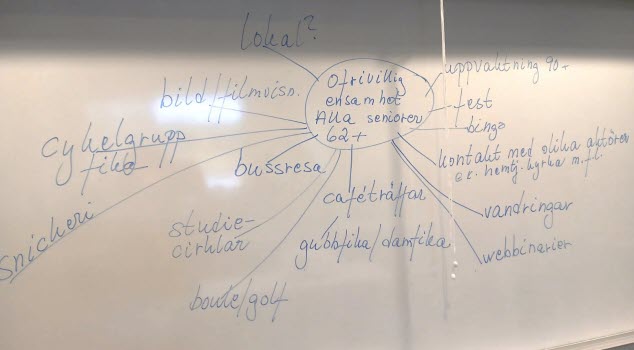 lokal?
Ofrivillig
ensamhet
Alla seniorer
62+
uppvaktning 90+
fest
bingo
kontakt med olika aktörer
ex. hemtj. kyrka m.fl.
vandringar
webbinarier
caféträffar
gubbfika/damfika
boule/golf
studie-
cirklar
bussresa
snickeri
cykelgrupp
fika
bild/filmvisn.